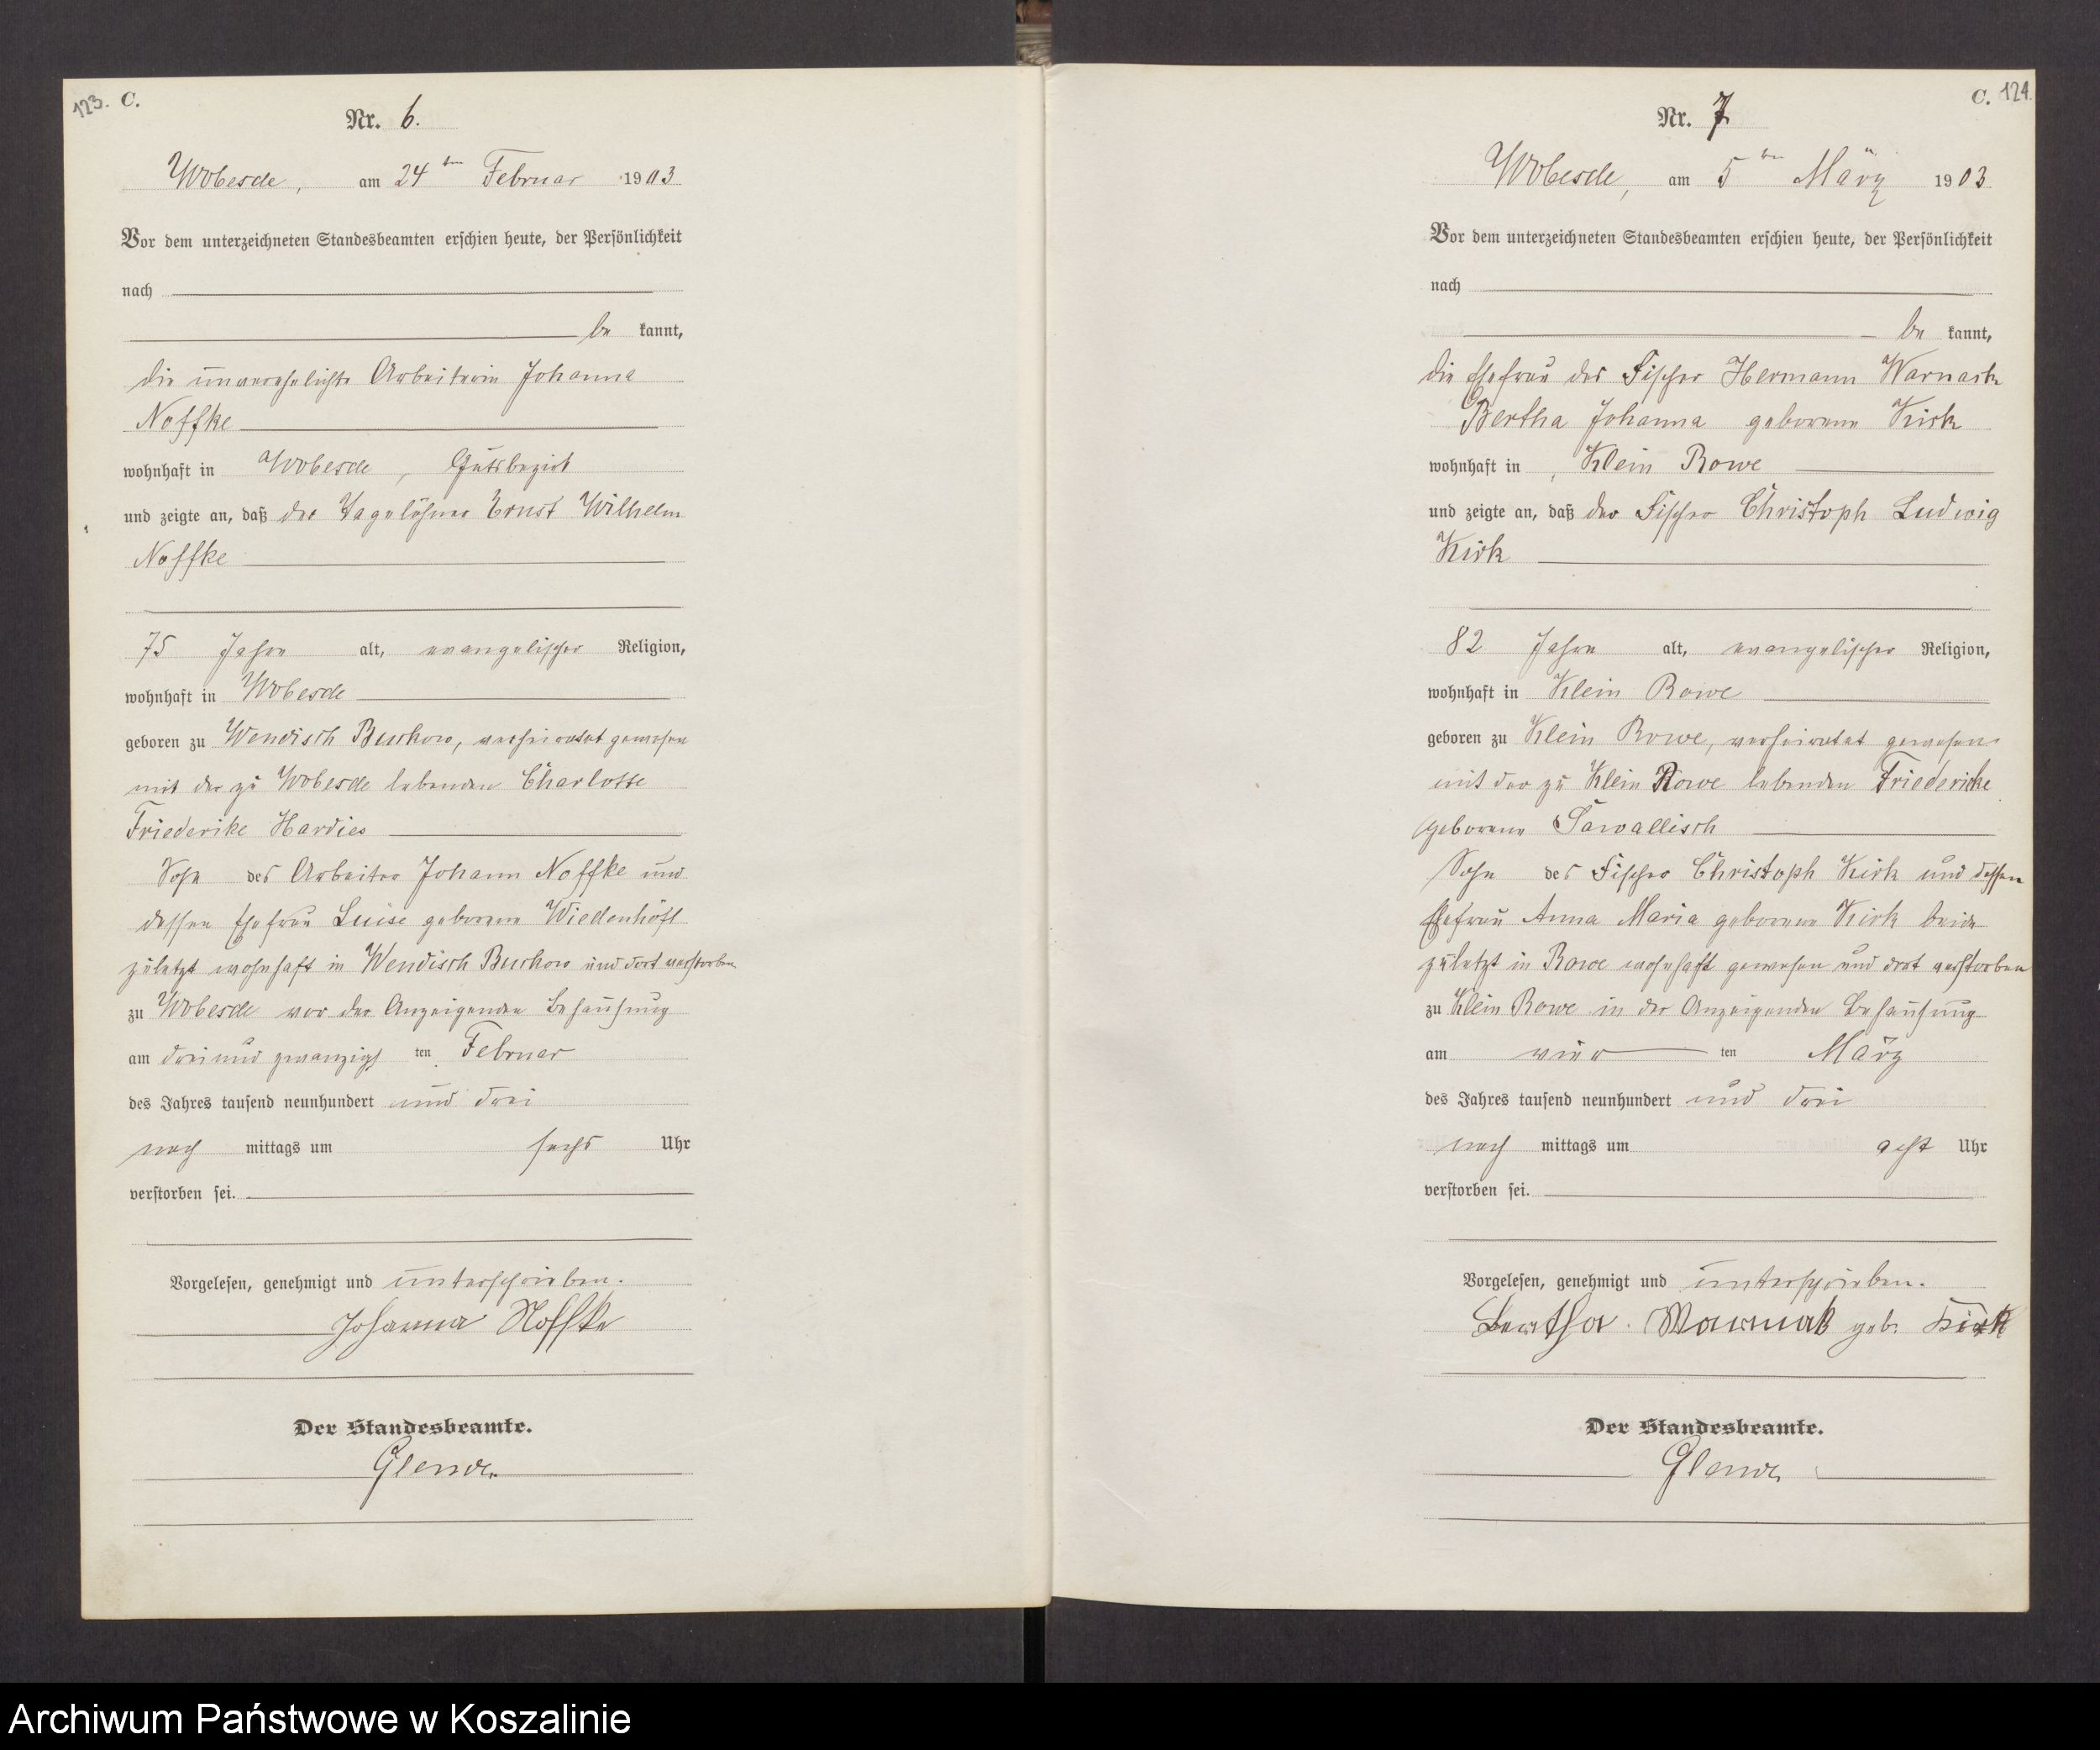 123. C.
Nr. 6.
Wobesde, am 24ten Februar 1903
Vor dem unterzeichneten Standesbeamten erschien heute, der Persönlichkeit
nach
be kannt,
die unverehelichte Arbeiterin Johanna
Noffke
wohnhaft in Wobesde, Gutsbezirk
und zeigte an, daß der Tagelöhner Ernst Wilhelm
Noffke
75 Jahre alt, evangelischer Religion,
wohnhaft in Wobesde
geboren zu Wendisch Buckow, verheiratet gewesen
mit der zu Wobesde lebenden Charlotte
Friederike Hardies
Sohn des Arbeiter Johann Noffke und
dessen Ehefrau Luise geborene Wiedenhöft
zuletzt wohnhaft in Wendisch Buckow und dort verstorben
zu Wobesde vor der Anzeigenden Behausung
am drei und zwanzigsten Februar
des Jahres tausend neunhundert und drei
nach mittags um sechs Uhr
verstorben sei.
Vorgelesen, genehmigt und unterschrieben.
Johanna Noffke
Der Standesbeamte.
Glende.
C. 124.
Nr. 7
Wobesde, am 5ten März 1903
Vor dem unterzeichneten Standesbeamten erschien heute, der Persönlichkeit
nach
be kannt,
die Ehefrau des Fischer Hermann Warnack
Bertha Johanna geborene Kirk
wohnhaft in Klein Rowe
und zeigte an, daß der Fischer Christoph Ludwig
Kirk
82 Jahre alt, evangelischer Religion,
wohnhaft in Klein Rowe
geboren zu Klein Rowe, verheiratet gewesen
mit der zu Klein Rowe lebenden Friedericke
geborene Sawallisch
Sohn des Fischer Christoph Kirk und dessen
Ehefrau Anna Maria geborene Kirk beide
zuletzt in Rowe wohnhaft gewesen und dort verstorben
zu Klein Rowe in der Anzeigenden Behausung
am vier ten März
des Jahres tausend neunhundert und drei
nach mittags um acht Uhr
verstorben sei.
Vorgelesen, genehmigt und unterschrieben.
Bertha Warnak geb. Kirk
Der Standesbeamte.
Glende
Archiwum Państwowe w Koszalinie